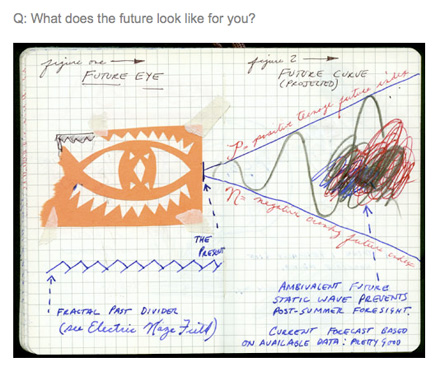 Q: What does the future look like for you?
figure one
FUTURE EYE
figure 2
FUTURE CURVE
(PROJECTED)
P= positive teenage future index
THE
PRESENT
N= negative future index
FRACTAL PAST DIVIDER
(see Electric Maze Field)
AMBIVALENT FUTURE
STATIC WAVE PREVENTS
POST-SUMMER FORESIGHT.
CURRENT FORECAST BASED
ON AVAILABLE DATA: PRETTY GOOD